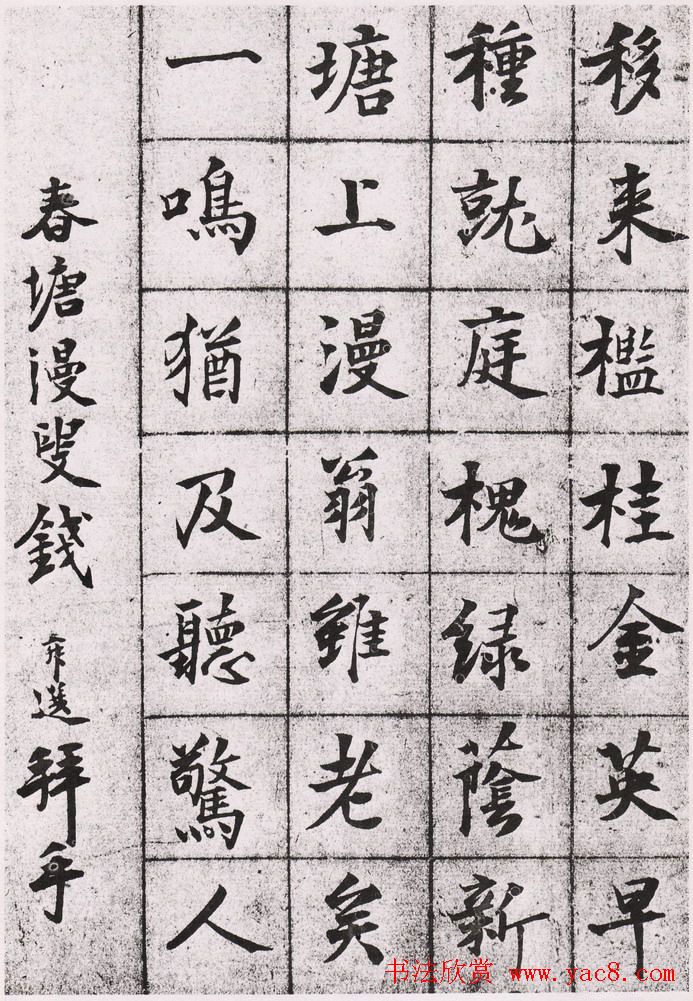 移来檻桂金英早
種就庭槐緑蔭新
塘上漫翁雖老矣
一鳴猶及聽驚人
春塘漫叟錢舜選拜手
书法欣赏 www.yac8.com